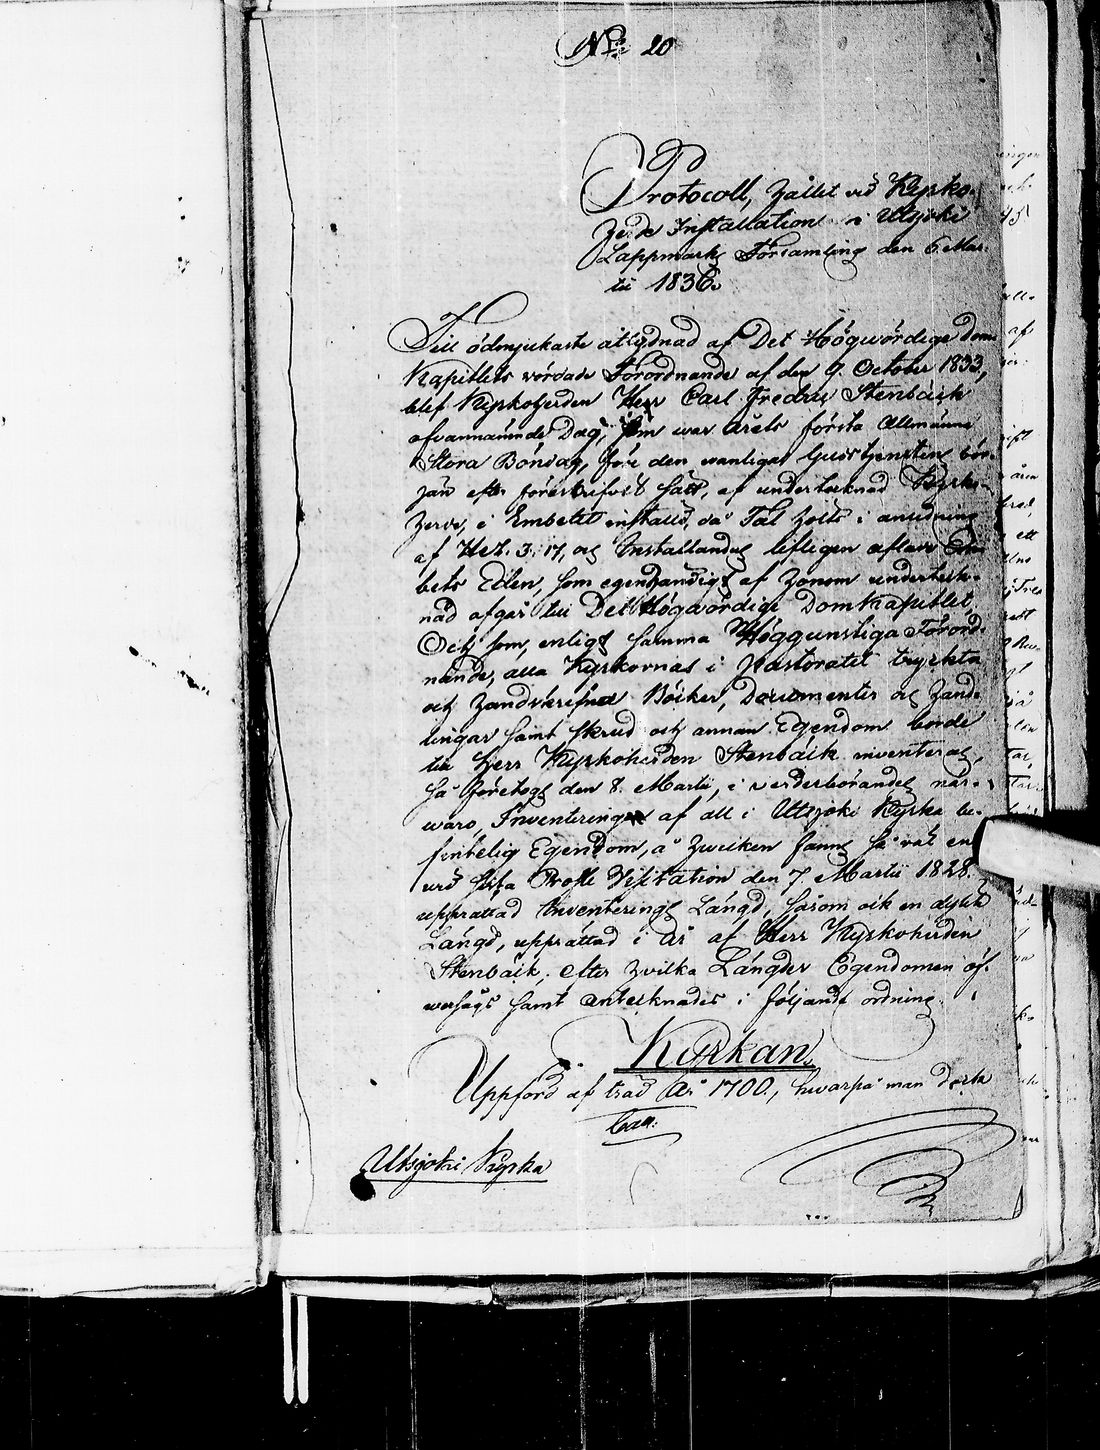 No 20
Protocoll, hållit vid Kyrko-
herde Installation i Utsjoki
Lappmarks Församling den 6 Mar-
tii 1836.
Till ödmjukaste åtlydnad af Det Högwördige Dom
Kapitlets vördade Förordnande af den 9. October 1833,
blef Kyrkoherden Herr Carl Fredric Stenbäck
ofvannämnde Dag, som war årets första Allmänna
Stora Böndag, före den vanliga Gudstjensten, bör-
jan efter föreskrifvit sätt, af undertecknad Kyrko-
herde, i Embetet installd, då Tal hölts i anledning
af Hez. 3: 17, och Installandus lifligen aflade Em-
bets Eden, som egenhändigt af honom underteck-
nad afgår till Det Högwördige DomKapitlet,
Och som, enligt samma Höggunstiga Förord-
nande, alla Kyrkornas i Pastoratet tryckta
och handskrifna Böcker, Documenter och Hand-
lingar samt skrud och annan Egendom borde
till Herr Kyrkoherden Stenbäck inventeras,
så företogs den 8. Martii, i vederbörandes när-
waro, Inventeringen af all i Utsjoki Kyrka be-
fintelig Egendom, å hwilken fanns så väl en
wid sista Probst Visitation den 7 Martii 1828.
upprättad Inventerings Längd, såsom ock en dylik
Längd, upprättad i år af Herr Kyrkoherden
Stenbäck, efter hvilka Längder Egendomen öf-
wersågs samt antecknades i följande ordning.
Kyrkan.
Uppförd af träd År 1700., hwarpå man dertu
Utsjoki Kyrka